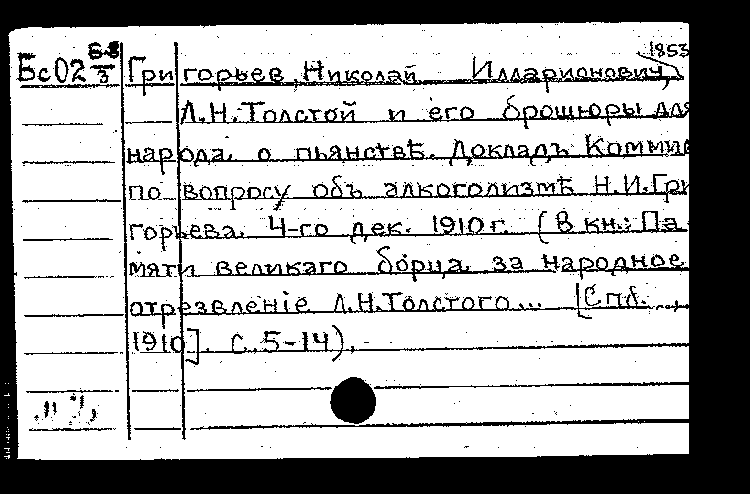 1853
Бс02 68/3 Григорьев, Николай Илларионович,
Л.Н.Толстой и его брошюры для
народа о пьянствѣ. Докладъ Комми
по вопросу объ алкоголизмѣ Н.И.Гри
горьева. 4-го дек. 1910г. (В кн.: Па-
мяти великаго борца за народное
отрезвленіе Л.Н.Толстого... [Спб.,
1910]. С.5-14).